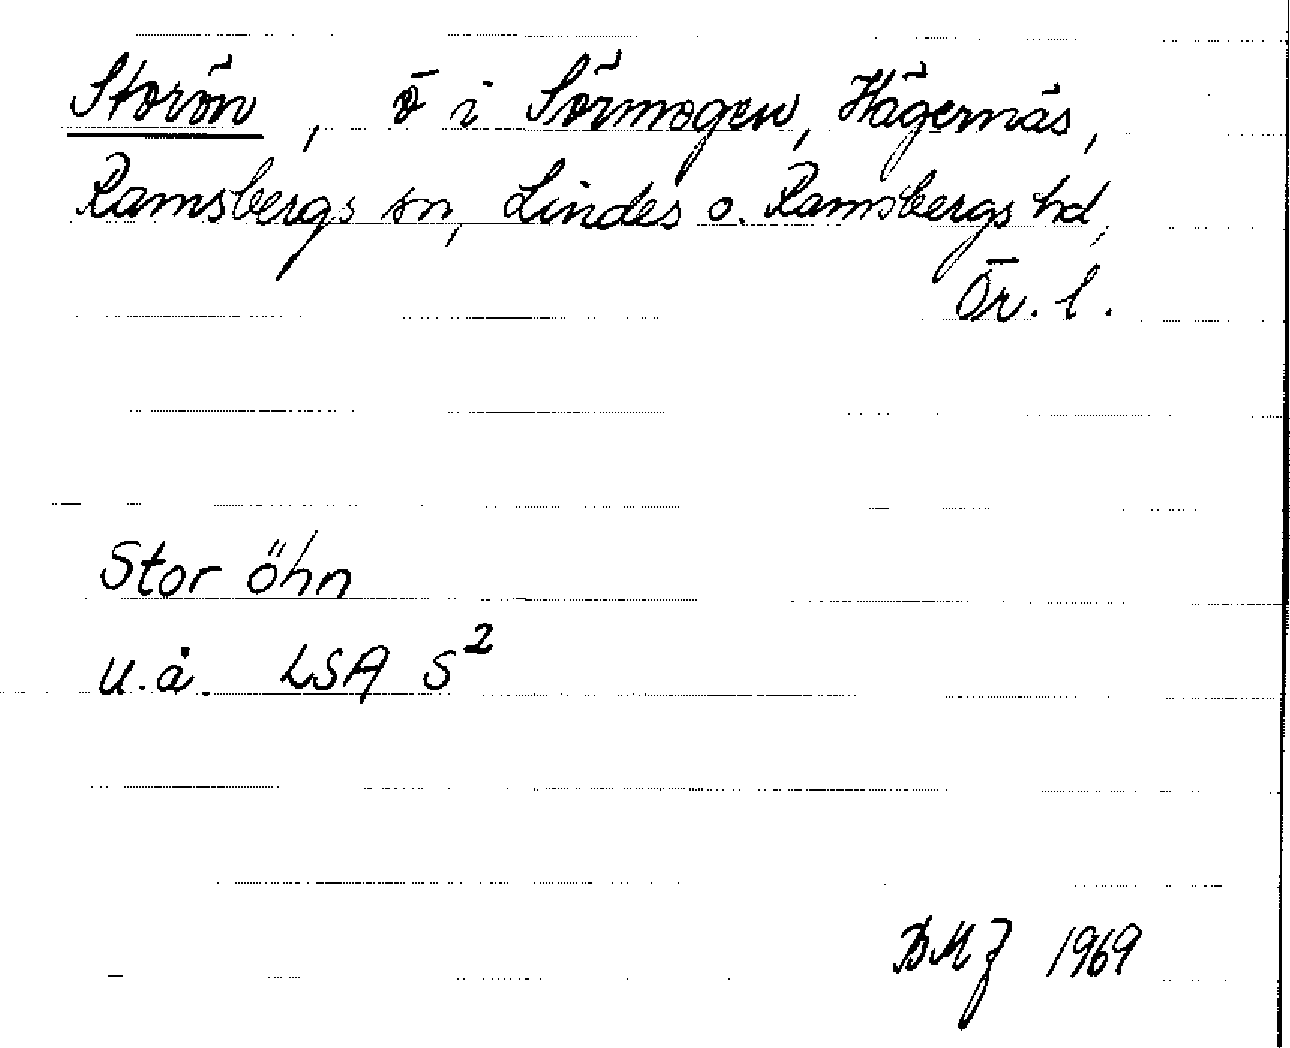 Storön, ö i Sörmogen, Hägernäs,
Ramsbergs sn, Lindes o. Ramsbergs hd,
Ör. l.
Stor öhn
u.å. LSA S²
BMJ 1969